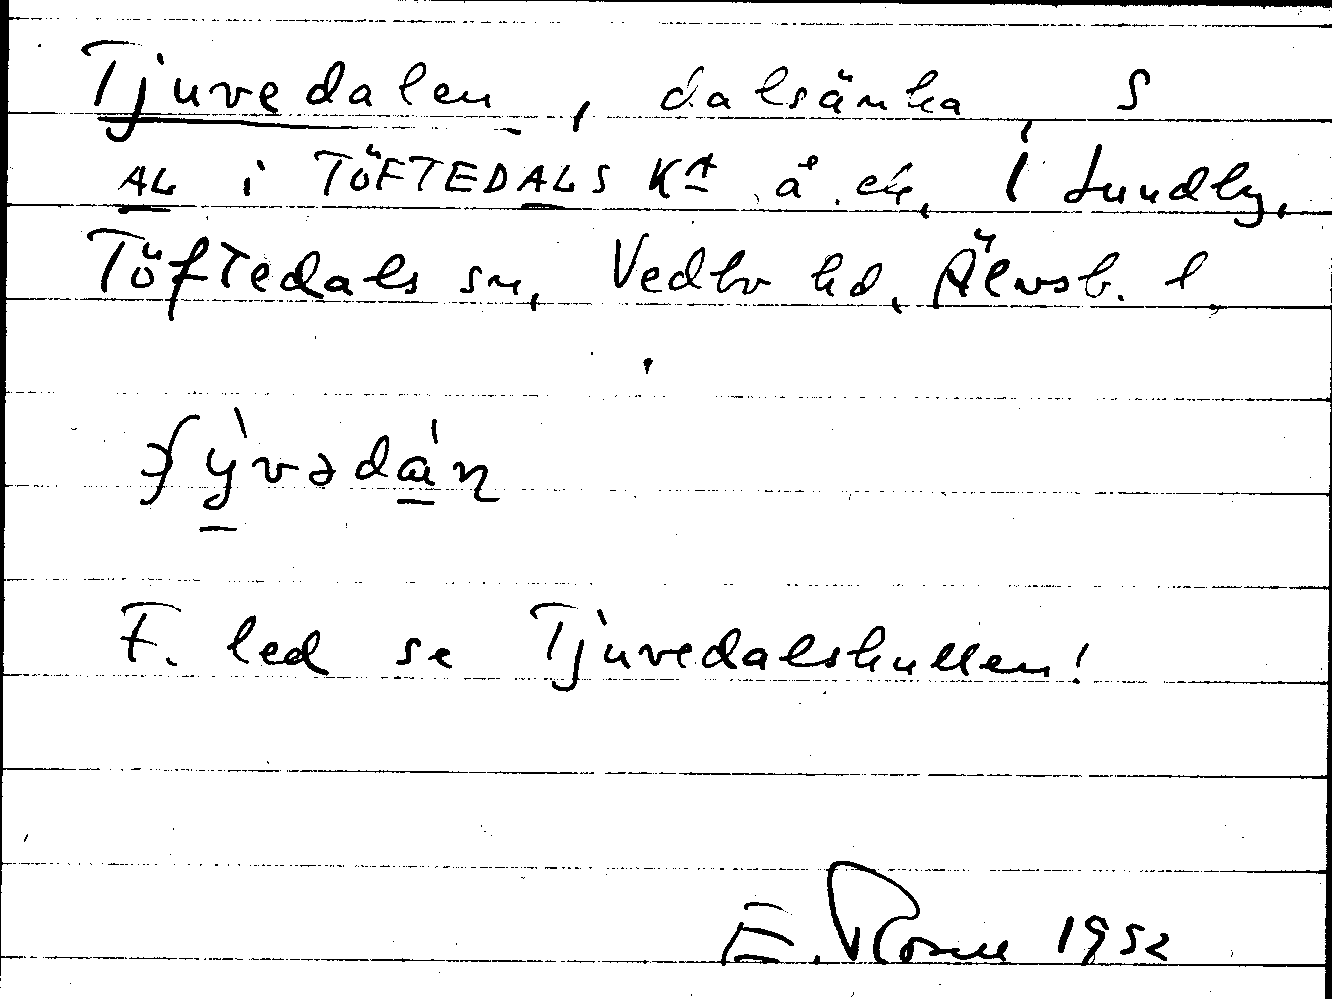 Tjuvedalen, dalsänka S
AL i TÖFTEDALS KA å. ek. i Lundby,
Töftedals sn, Vedbo hd, Älvsb. l,
F. led se Tjuvedalskullen!
E. Rosell 1952